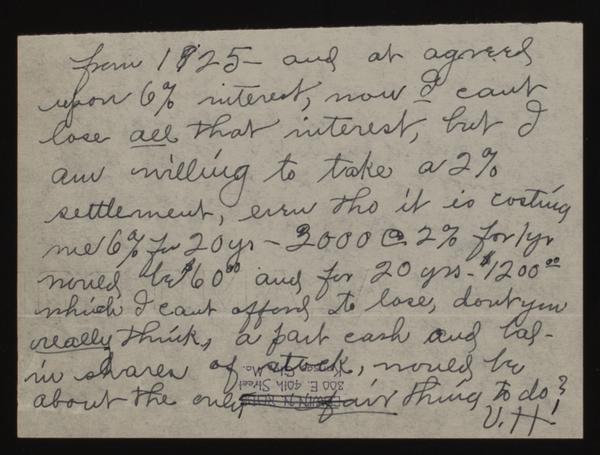 from 1925 - and at agreed
upon 6% interest, now I cant
lose all that interest, but I
am willing to take a 2%
settlement, even tho it is costing
me 6% for 20 yrs - 3000 @ 2% for 1 yr
would be $60⁰⁰ and for 20 yrs - $1200⁰⁰
which I cant afford to lose, dont you
really think, a part cash and bal-
in shares of stock, would be
about the only fair thing to do?
V.H.
300 E. 40th Street
Kansas City, Mo.